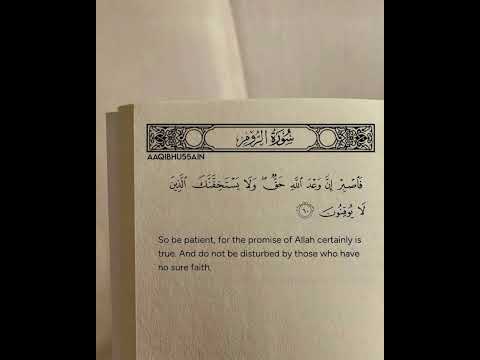 سُورَةُ الرُّومِ
AAQIBHU55AIN
فَٱصۡبِرۡ إِنَّ وَعۡدَ ٱللَّهِ حَقّٞۖ وَلَا يَسۡتَخِفَّنَّكَ ٱلَّذِينَ
لَا يُوقِنُونَ ٦٠
So be patient, for the promise of Allah certainly is
true. And do not be disturbed by those who have
no sure faith.